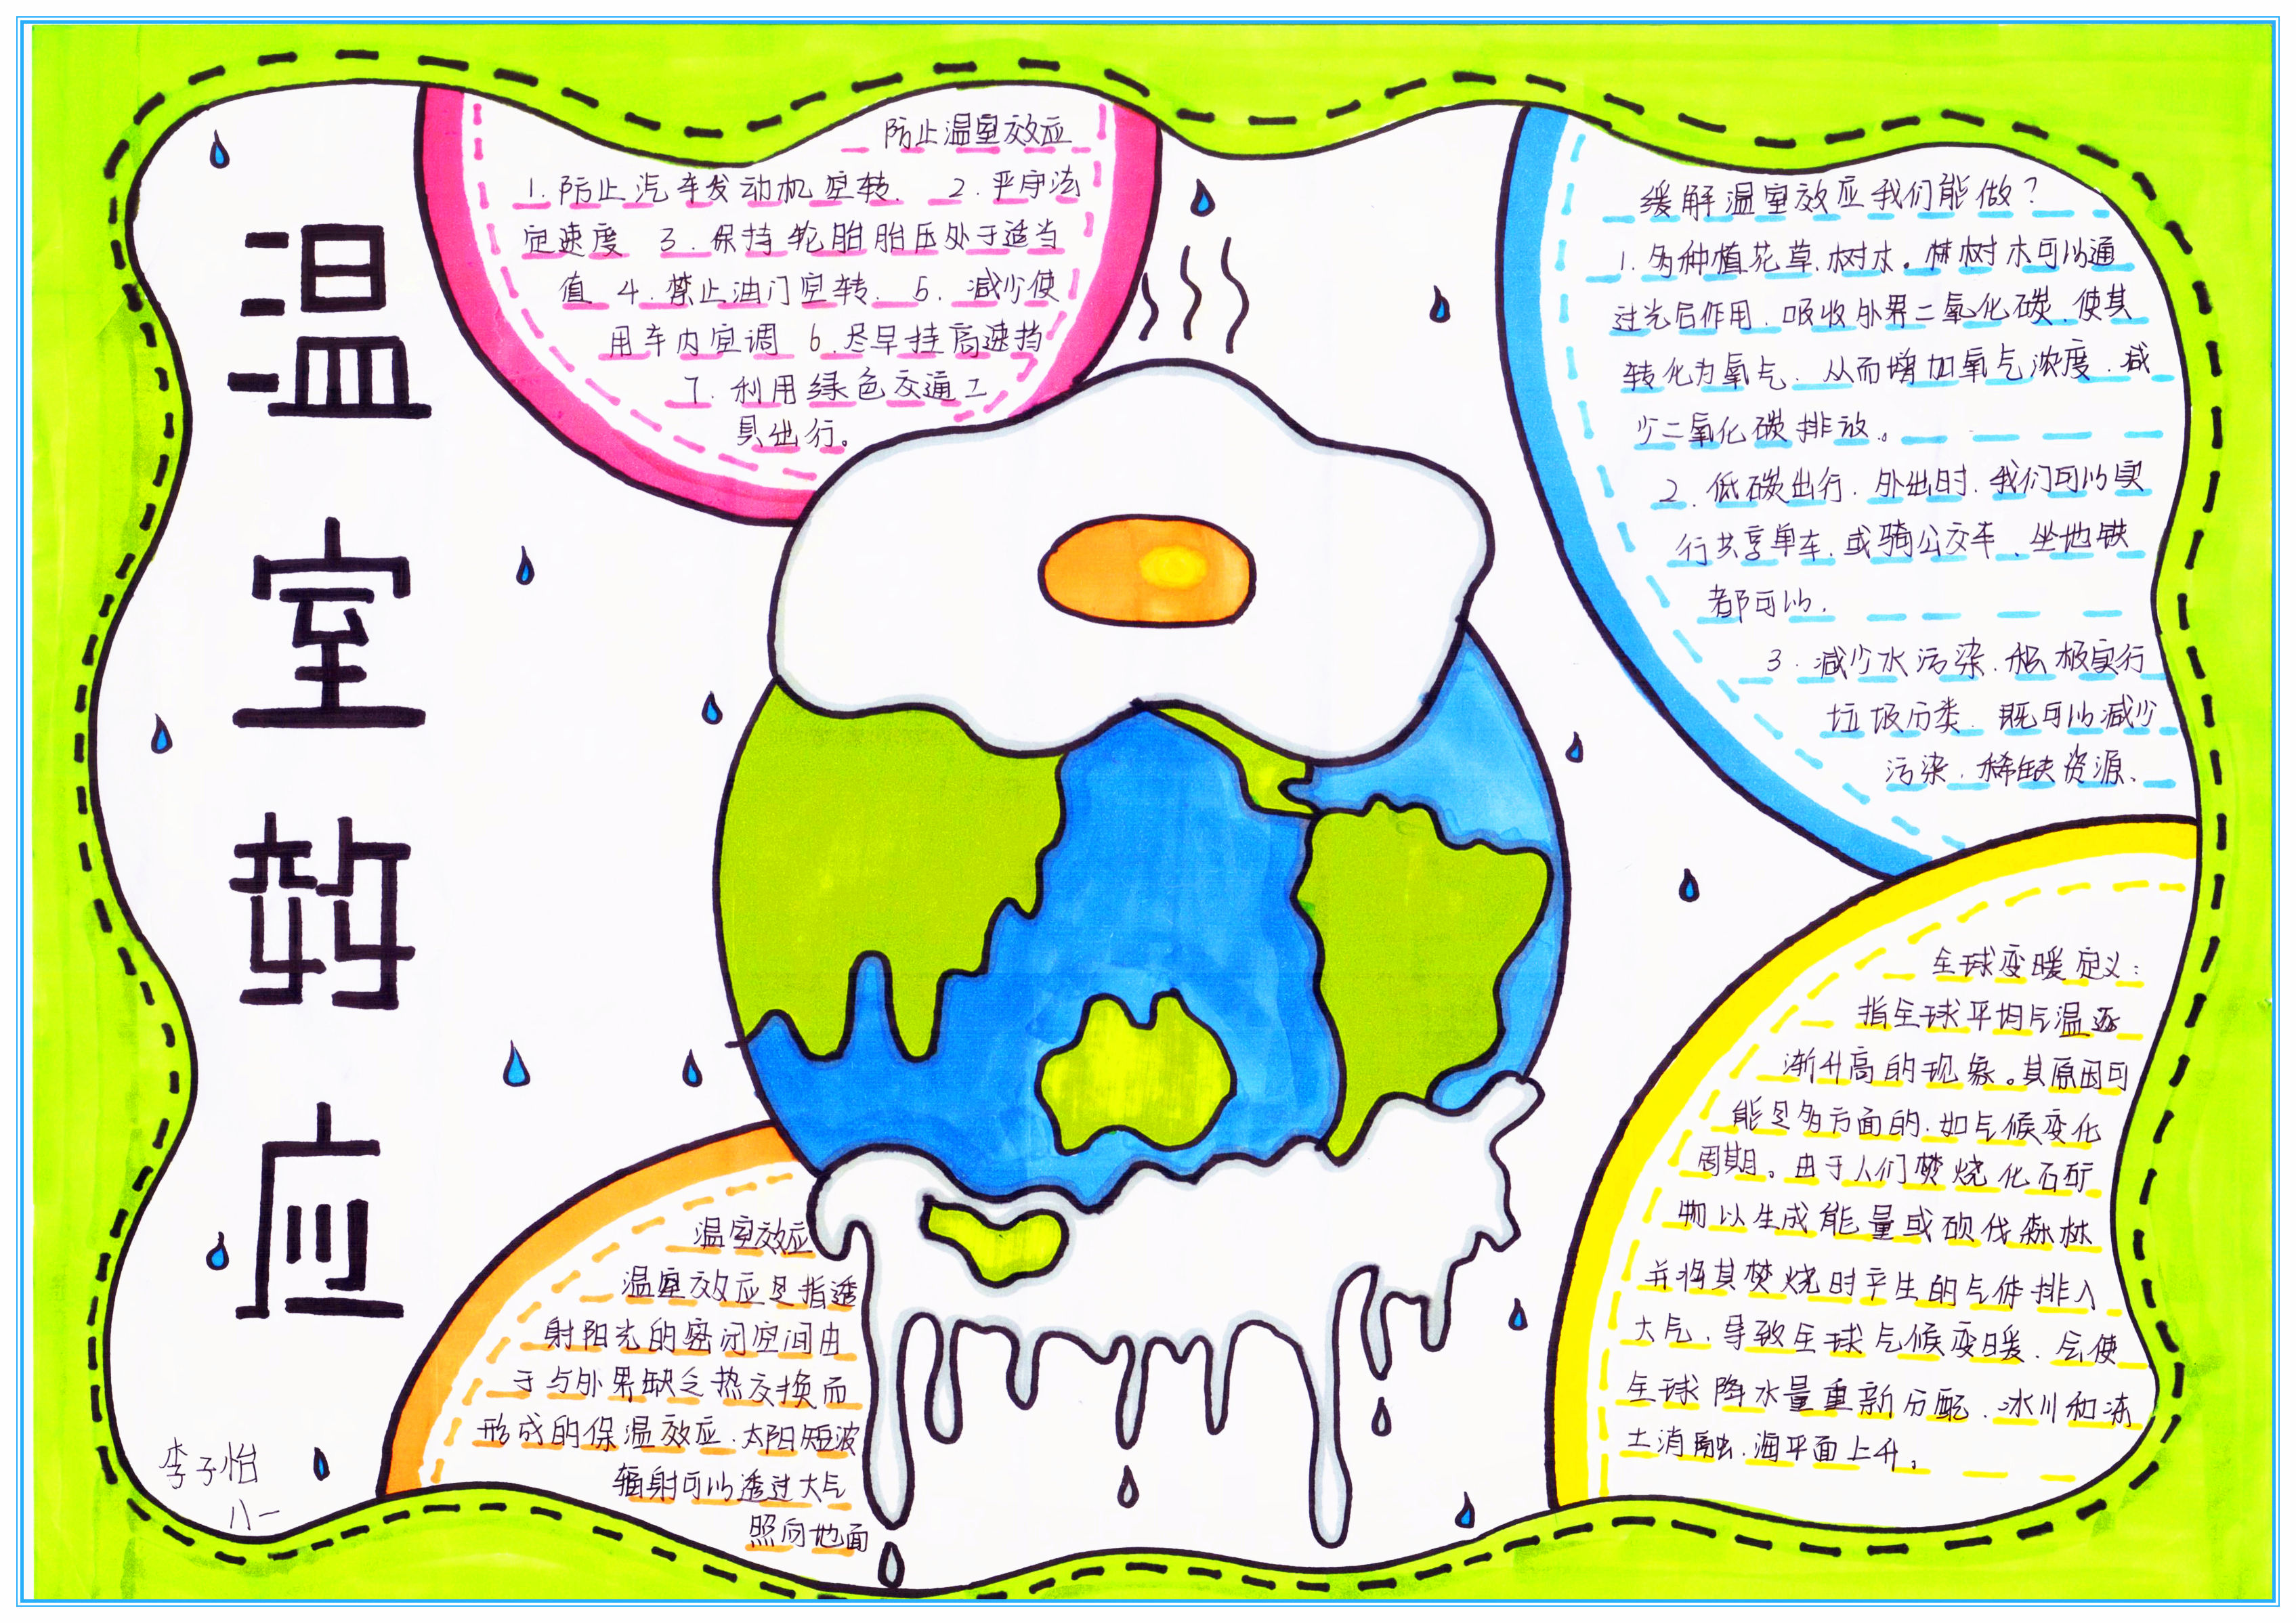 温室效应
防止温室效应
1.防止汽车发动机空转. 2.严守法
定速度 3.保持轮胎胎压处于适当
值 4.禁止油门空转. 5.减少使
用车内空调 6.尽早挂高速挡
7.利用绿色交通工
具出行。
缓解温室效应我们能做?
1.多种植花草.树木。林树木可以通
过光后作用.吸收外界二氧化碳.使其
转化为氧气.从而增加氧气浓度.减
少二氧化碳排放。
2.低碳出行.外出时.我们可以实
行共享单车.或骑公交车、坐地铁
都可以.
3.减少水污染.积极实行
垃圾分类.既可以减少
污染.稀缺资源、
全球变暖定义:
指全球平均气温逐
渐升高的现象。其原因可
能是多方面的.如气候变化
周期。由于人们焚烧化石矿
物以生成能量或砍伐森林
并将其焚烧时产生的气体排入
大气.导致全球气候变暖.会使
全球降水量重新分配.冰川和冻
土消融.海平面上升。
温室效应
温室效应是指透
射阳光的密闭空间由
于与外界缺乏热交换而
形成的保温效应.太阳短波
辐射可以透过大气
照向地面
李子怡
八一